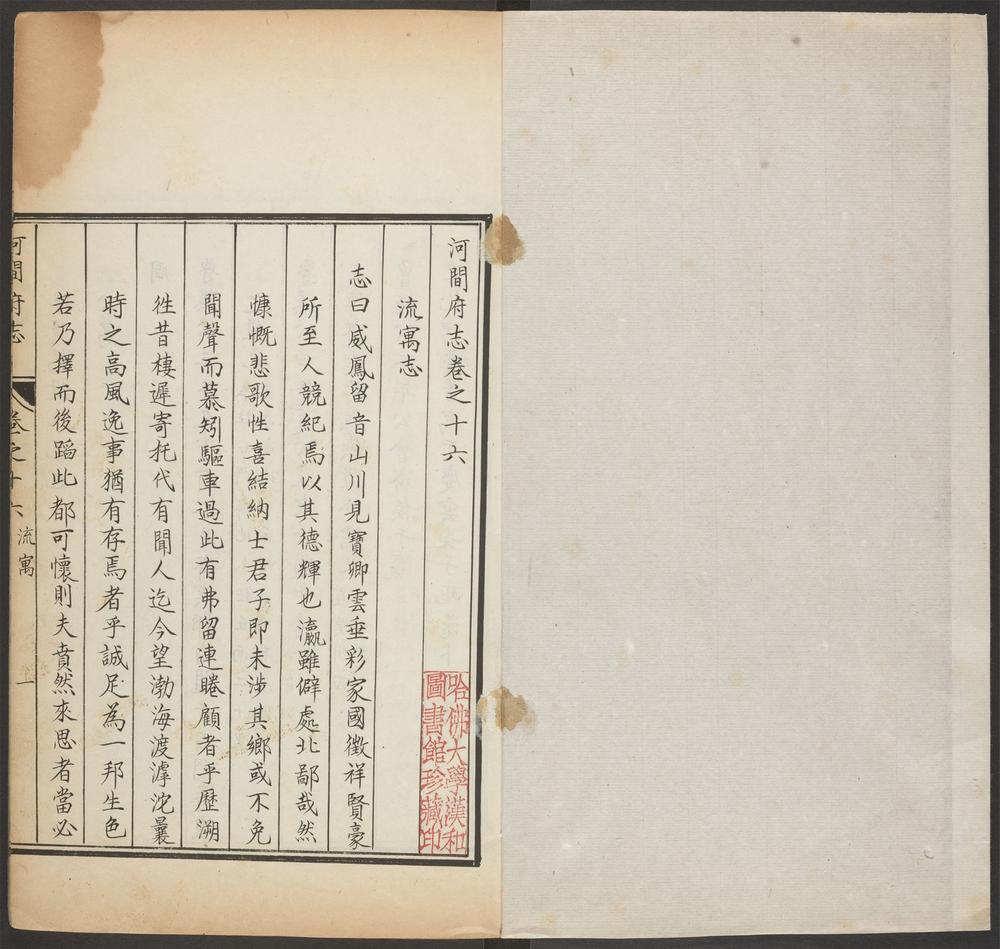 河間府志卷之十六
流寓志
志曰威鳳留音山川見寶卿雲垂彩家國徵祥賢豪
所至人競紀焉以其德輝也瀛雖僻處北鄙哉然
慷慨悲歌性喜結納士君子即未涉其鄉或不免
聞聲而慕矧驅車過此有弗留連睠顧者乎歷溯
徃昔棲遲寄托代有聞人迄今望渤海渡滹沱曩
時之高風逸事猶有存焉者乎誠足為一邦生色
若乃擇而後蹈此都可懷則夫賁然來思者當必
河間府志
卷之十六
流寓
一
哈佛大學漢和
圖書館珍藏印